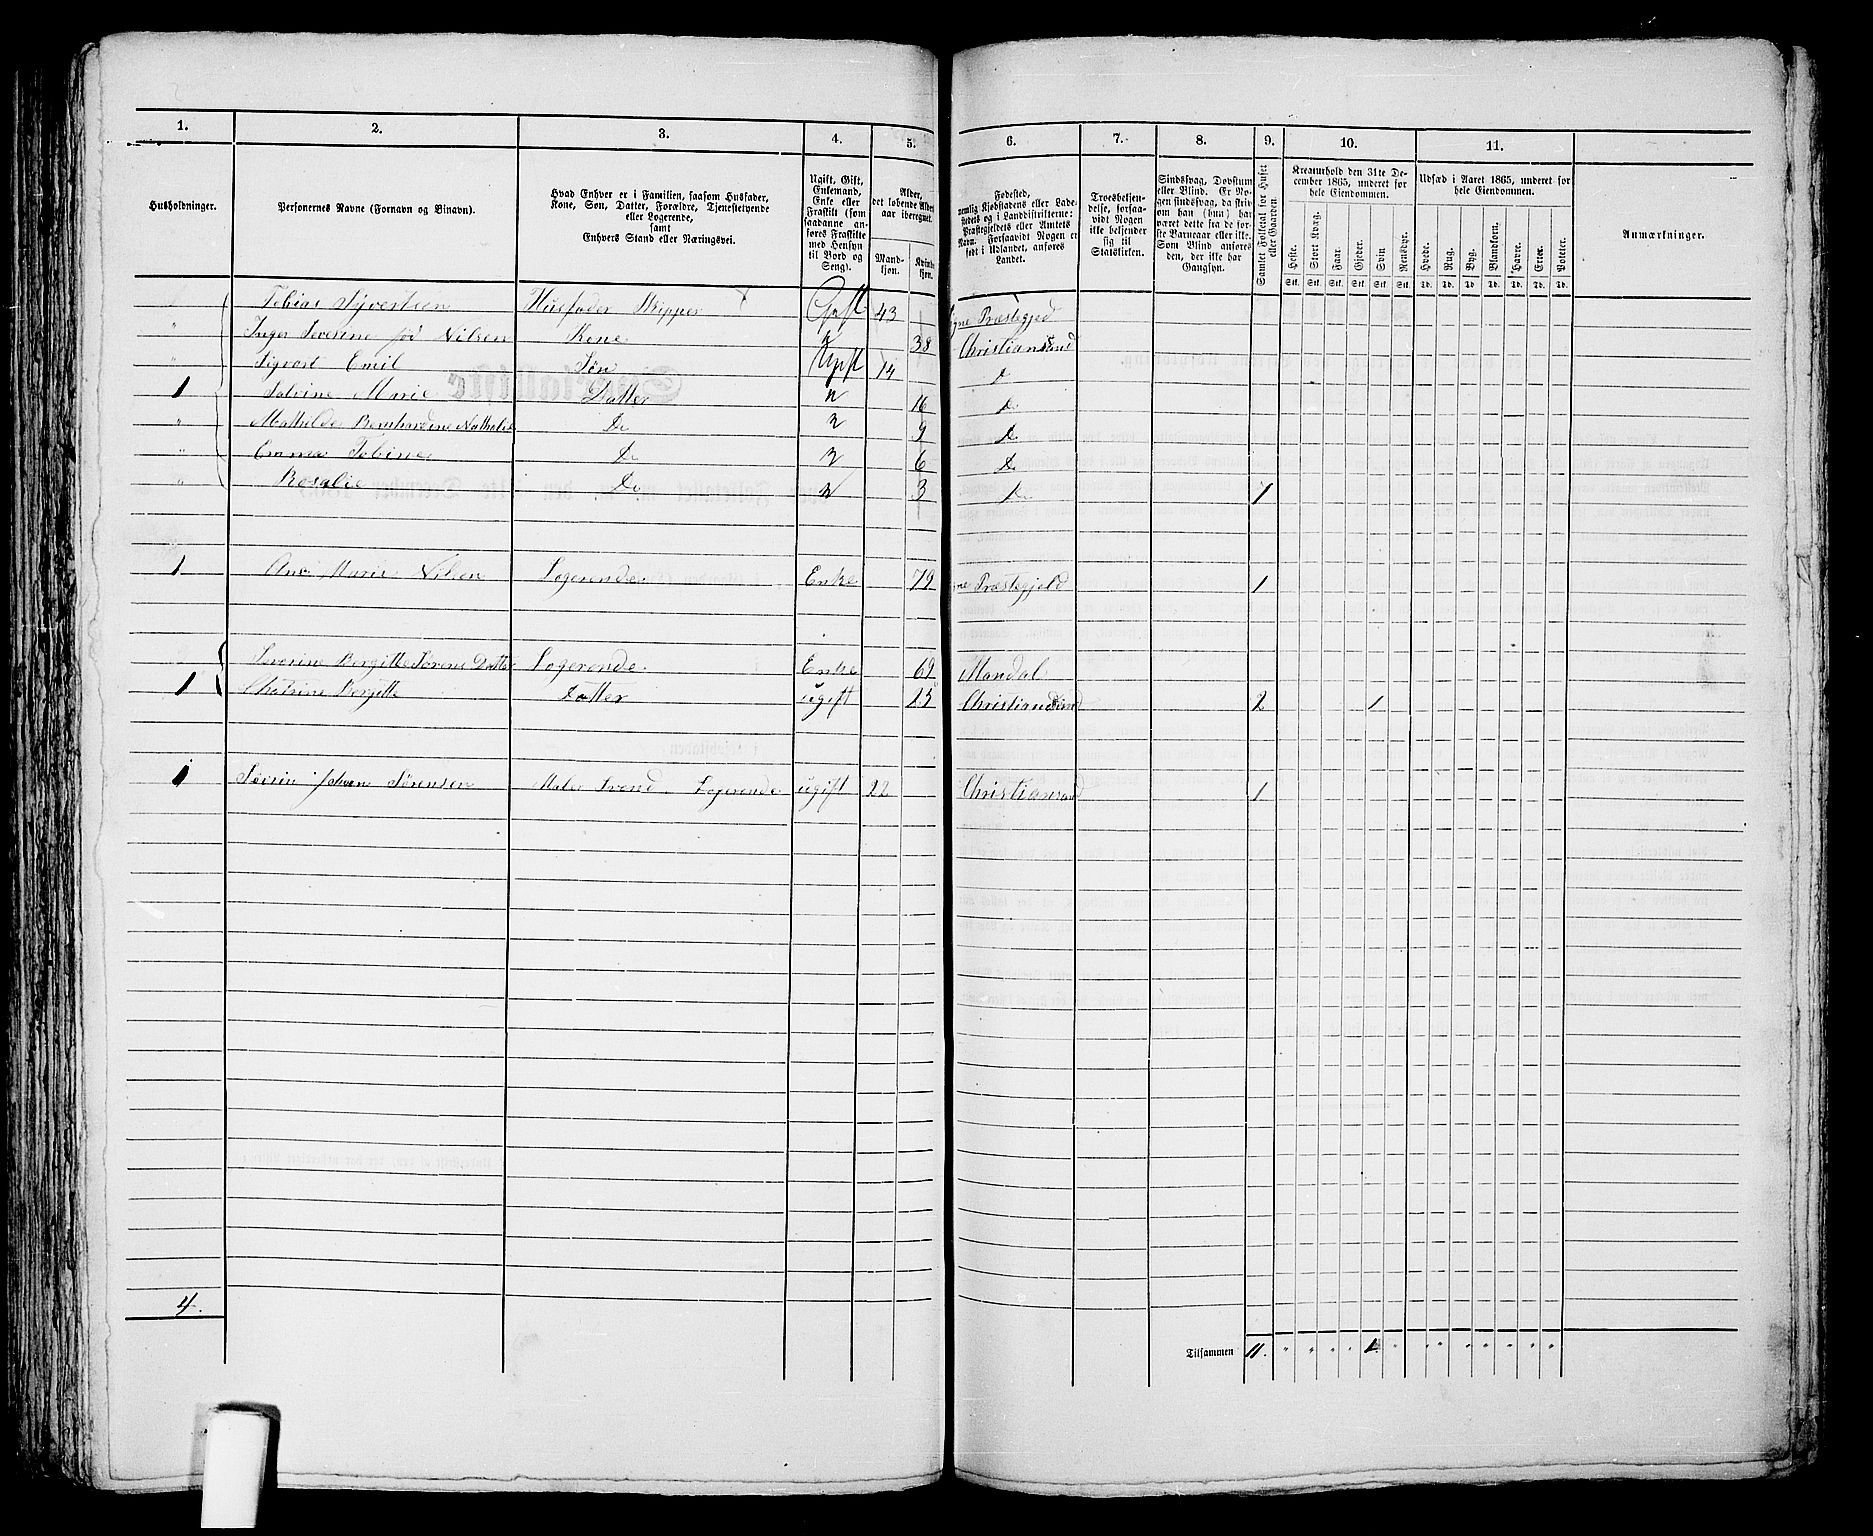 1. 2. 3. 4. 5. 6. 7. 8. 9. 10. 11.
Husholdninger.
Personernes Navne (Fornavn og Binavn).
Hvad Enhver er i Familien, saasom Husfader,
Kone, Søn, Datter, Forældre, Tjenestetyende
eller Logerende,
samt
Enhvers Stand eller Næringsvei.
Ugift, Gift,
Enkemand,
Enke eller
Fraskilt (som
saadanne an-
føres Fraskilte
med Hensyn
til Bord og
Seng).
Alder,
det løbende Alders-
aar iberegnet.
Mand-
kjøn.
Kvinde-
kjøn.
Fødested,
nemlig Kjøbstadens eller Lade-
stedets og i Landdistrikterne:
Præstegjeldets eller Amtets
Navn. Forsaavidt Nogen er
født i Udlandet, anføres
Landet.
Troesbekjen-
delse, forsaa-
vidt Nogen
ikke bekjender
sig til
Statskirken.
Sindssvag, Døvstum
eller Blind. Er No-
gen sindssvag, da skriv
om han (hun) har
været dette fra de før-
ste Barneaar eller ikke.
Som Blind anføres
den, der ikke har
Gangsyn.
Samlet Folketal for Huset
eller Gaarden.
Kreaturhold den 31te De-
cember 1865, underet for
hele Eiendommen.
Heste. Stort Kvæg. Faar. Gjeder. Svin. Rensdyr.
Stk. Stk. Stk. Stk. Stk. Stk.
Udsæd i Aaret 1865, underet for
hele Eiendommen.
Hvede. Rug. Byg. Blandkorn. Havre. Erter. Poteter.
Td. Td. Td. Td. Td. Td. Td.
Anmærkninger.
Tobias Syvertsen Husfader Skipper Gift 43 Præstegjed
" Inger Severine fød Nilsen Kone " 38 Christiansand
" Sigvart Emil Søn Ugift 14 D
1 Marie Datter " 16 Do
" Mathilde Bernhardine Nathalie Do " 9 Do
" Emma Tobine Do " 6 Do
" Rosalie Do " 3 Do 7
1 Ane Marie Nilsen Logerende Enke 79 Præstegjeld 1
Severine Bergitte Sørens Datter Logerende Enke 69 Mandal
1 Bergitte Datter ugift 25 Christiansand 2 1
1 Johan Sørensen Maler Svend Logerende ugift 22 Christiansand 1
4.
Tilsammen 11. " " " " 1. " " " " " " " "